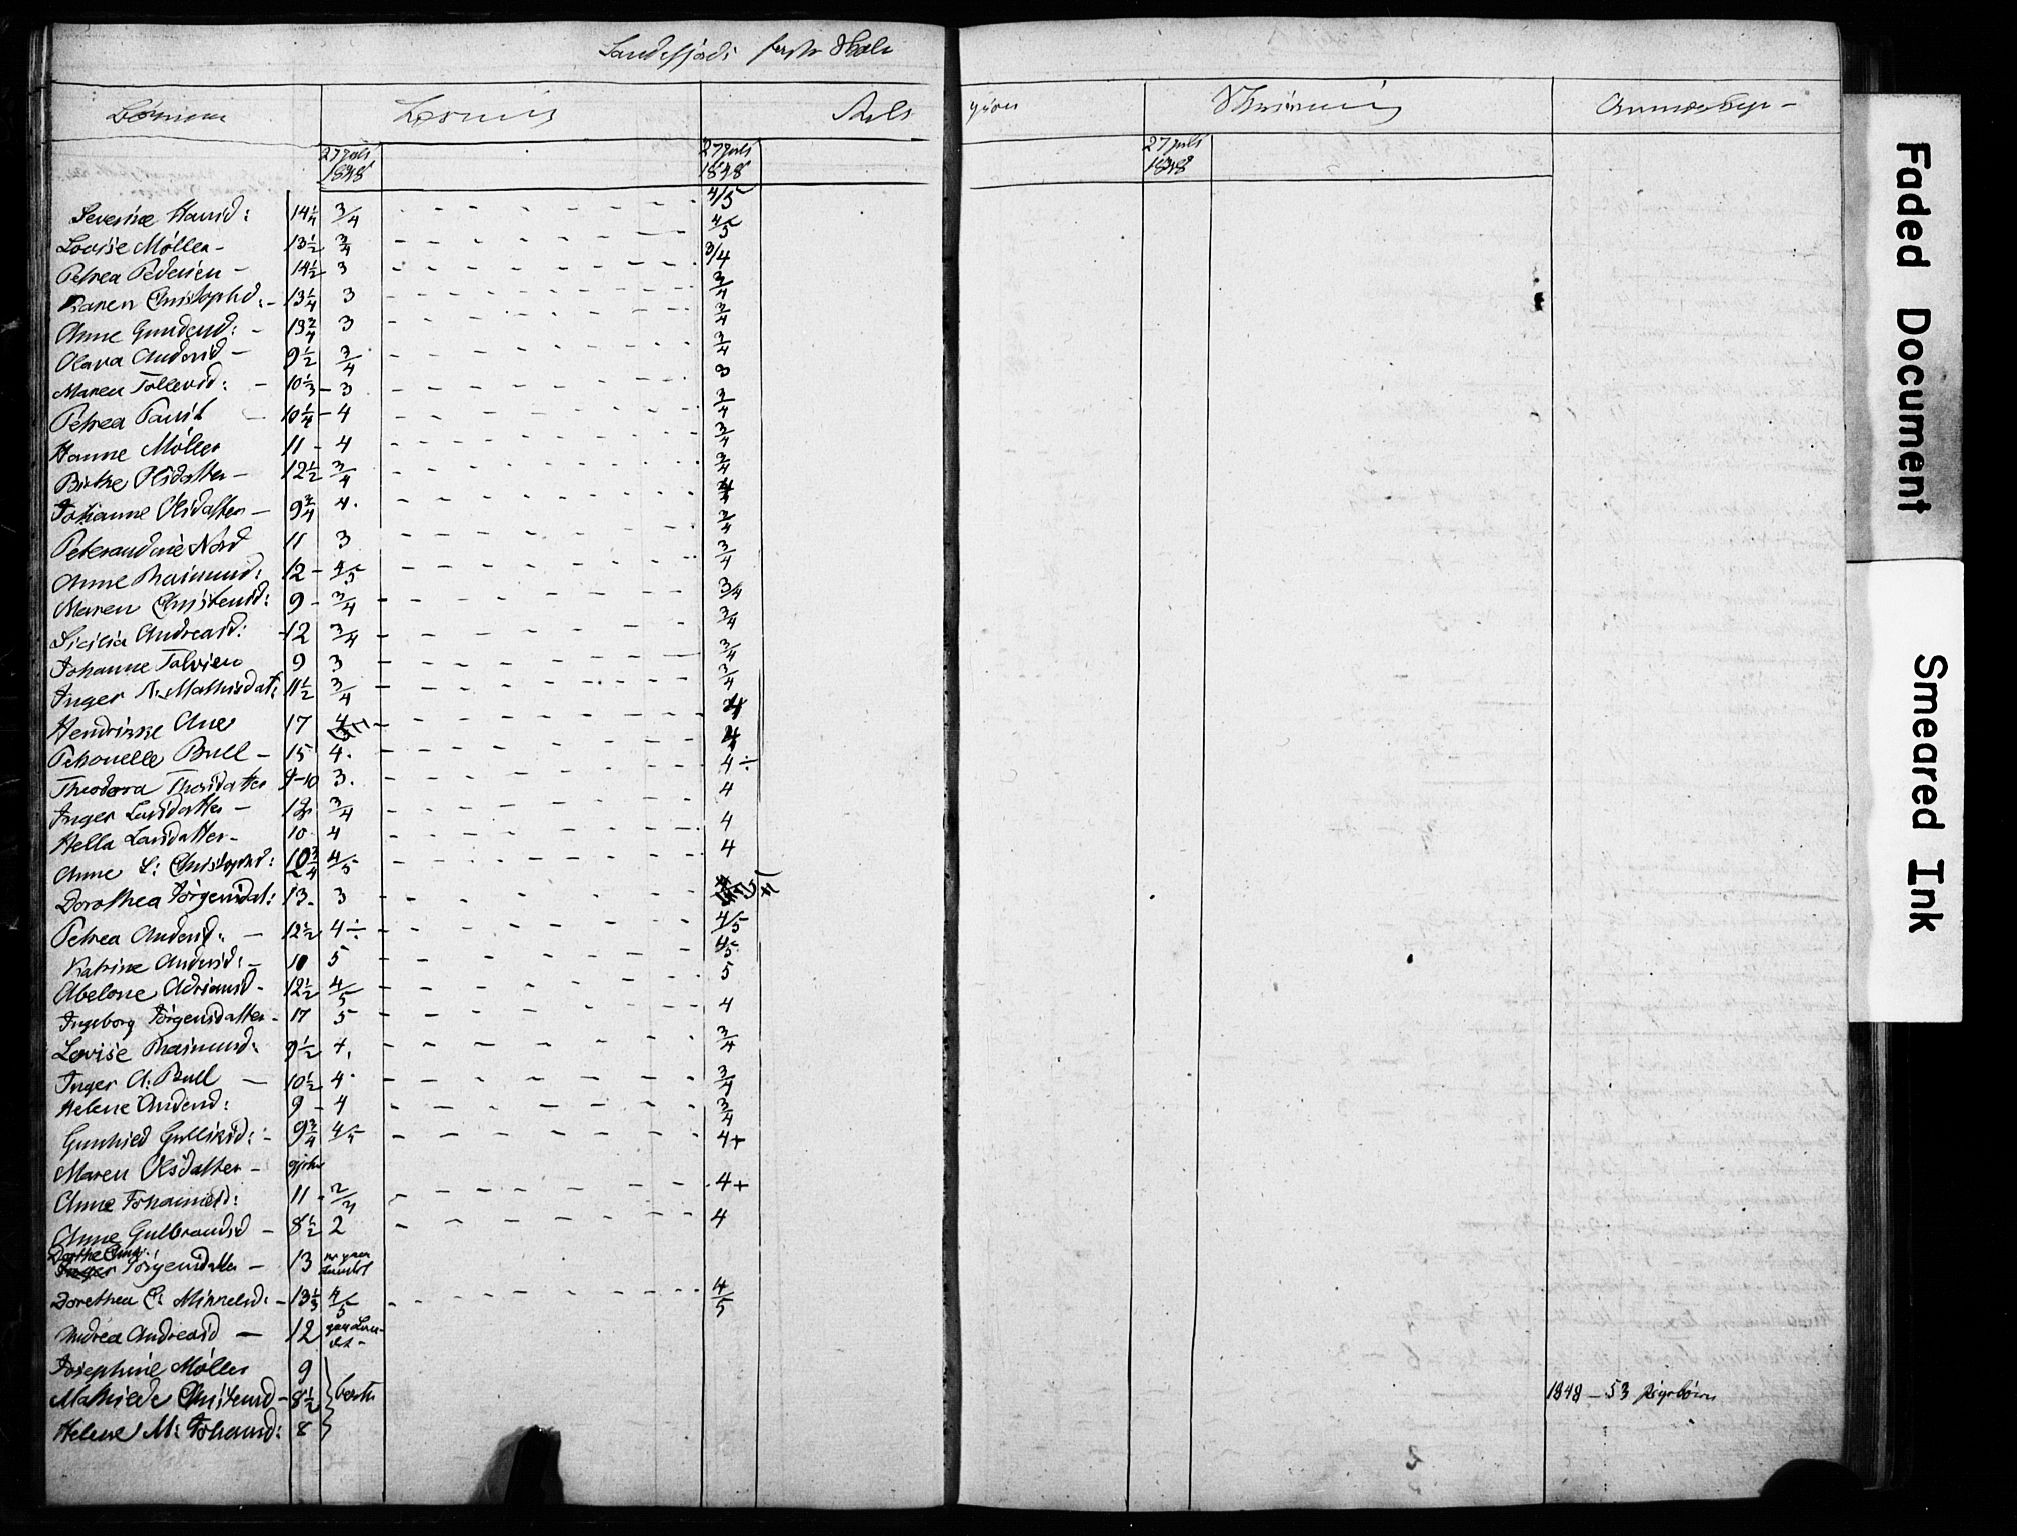 Sandefjords første Skole
Børnene Læsning Reli gion Skrivning Anmærkn
27 juli 1848 27 juli 1848 27 juli 1848
Severine Hansd: 14 1/4 3/4 4/5
Lovise Møller - 13 1/2 3/4 4/5
Petrea Pedersen - 14 1/2 3 3/4
Karen Christophd: - 13 1/4 3 3/4
Anne Gundersd: - 13 3/4 3 3/4
Olava Andersd - 9 1/2 3/4 3/4
Maren Tollevsd: - 10 1/3 - 3 3
Petrea 10 1/4 - 4 3/4
Hanne Møller 11 - 4 3/4
Birthe Olsdatter - 12 1/2 3/4 3/4
Johanne Olsdatter - 9 3/4 4. 4
Peterandine Nord 11 3 3/4
Anne Rasmusd: 12 - 4/5 3/4
Maren Christensd: 9 - 3/4 3/4
Sicilia Andreasd: 12 3/4 3/4
Johanne 9 3 3/4
Inger N: Mathisdat: 11 1/2 3/4 3/4
Hendrikke 17 4
Petronelle Bull - 15 4. 4
Theodora Thorsdatter 9-10 3. 4÷
Inger Larsdatter - 12 3/4 4
Hella Larsdatter - 10 4 4
Anne L: Christophd: 10 3/4 4/5 4
Dorothea Jörgensdat: 13. 3
Petrea Andersd: - 12 1/2 4÷ 4/5
Katrine Andersd: - 10 5 4/5
Abelone Adriansd - 12 1/2 4/5 5
Ingeborg Jörgensdatter - 17 5 4
Lovise Rasmusd: 9 1/2 4. 3/4
Inger A: Bull - 10 1/2 4. 3/4
Helene Andersd: 9 - 4 3/4
Gunhild Gulliksd: - 9 3/4 4/5 4+
Maren Olsdatter -
Anne Johannesd: 11 - 2/3 4+
Anne Gulbrandsd - 8 1/2 2 4
Dorthe
Inger Jörgensdatter - 13
Dorethea C: Mikkelsd: - 13 1/3 4/5 4/5
Andrea Andreasd - 12
Josephine Møller 9
Mathilde Christensd - 8 1/2
Helene M: Johansd: 8
1848 - 53 pigebörn
Faded Document
Smeared Ink